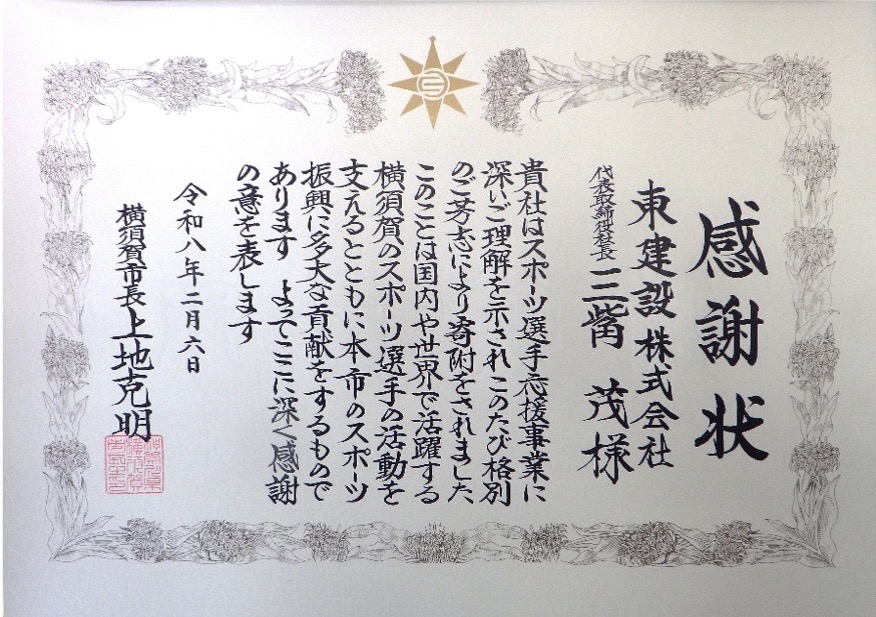 感謝状
東建設株式会社
代表取締役社長 三觜 茂様
貴社はスポーツ選手応援事業に
深いご理解を示されこのたび格別
のご芳志により寄附をされました
このことは国内や世界で活躍する
横須賀のスポーツ選手の活動を
支えるとともに本市のスポーツ
振興に多大な貢献をするもので
あります よってここに深く感謝
の意を表します
令和八年二月六日
横須賀市長 上地克明